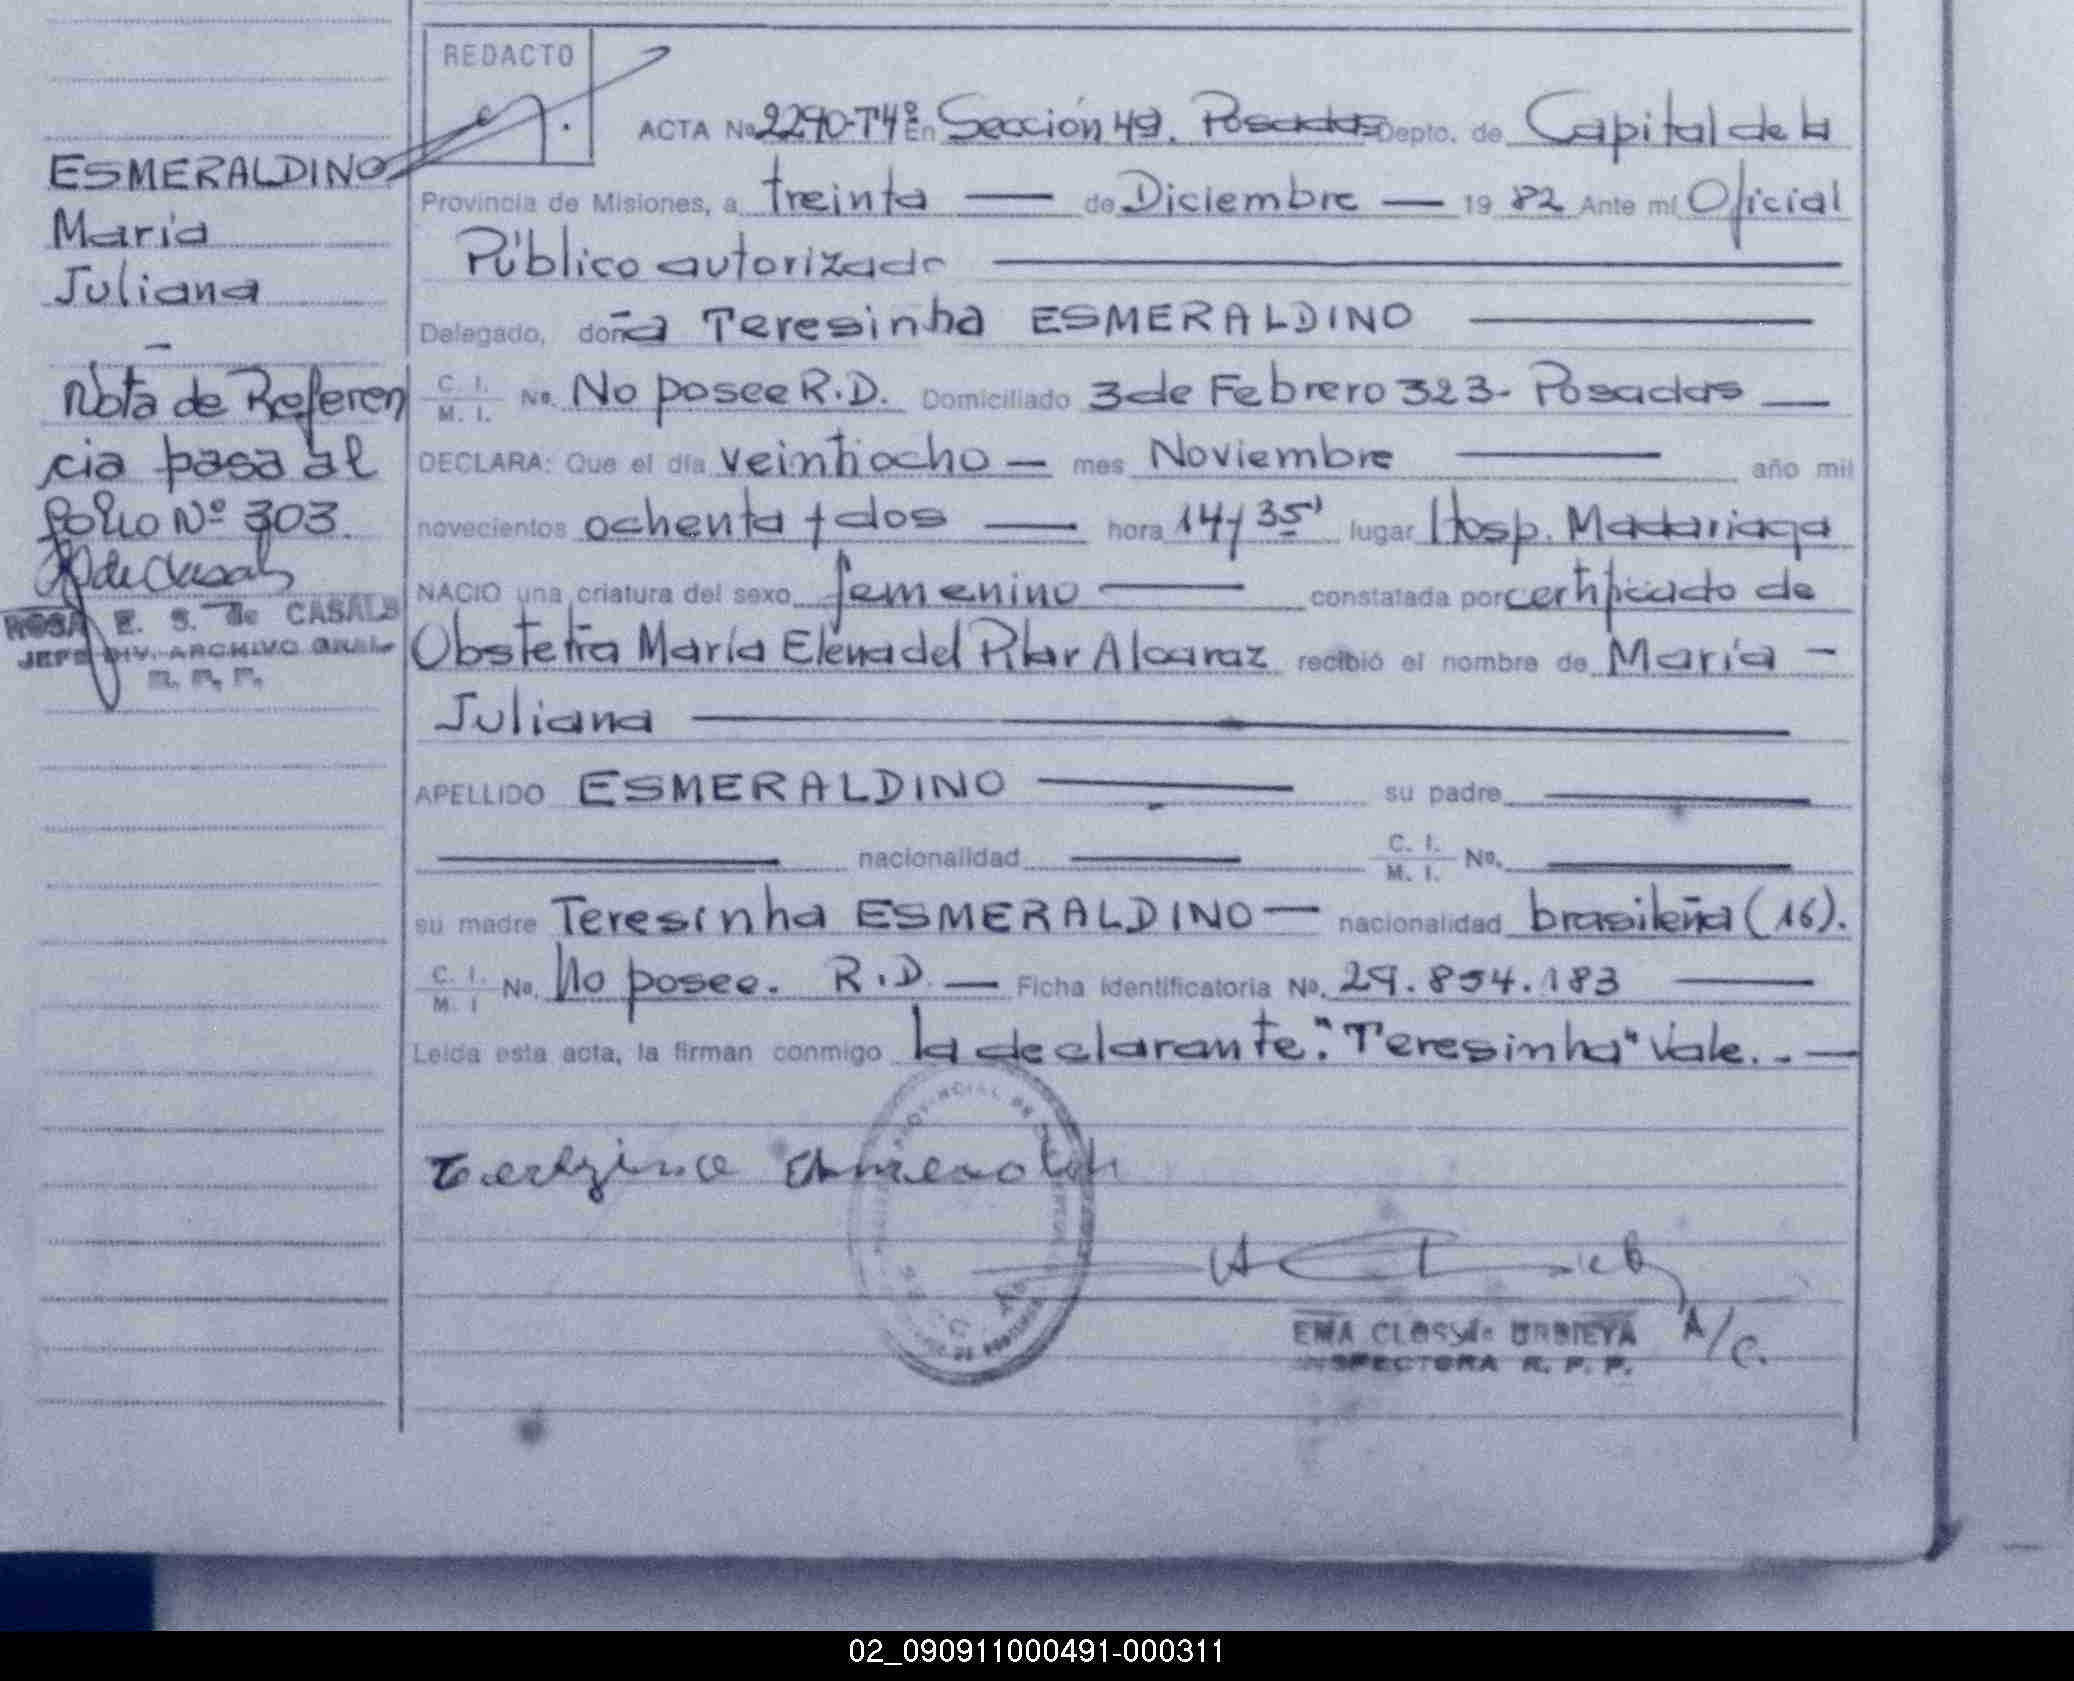 REDACTO
ACTA No 2290-T4º En Sección 4ª. Posadas Depto. de Capital de la
Provincia de Misiones, a treinta — de Diciembre — 19 82 Ante mí Oficial
Público autorizado
Delegado, doña Teresinha ESMERALDINO
C. I. M. I. No. No posee R.D. Domiciliado 3 de Febrero 323- Posadas —
DECLARA: Que el día veintiocho — mes Noviembre — año mil
novecientos ochenta y dos — hora 14/35' lugar Hosp. Madariaga
NACIO una criatura del sexo femenino — constatada por certificado de
Obstetra María Elena del Pilar Alcaraz recibió el nombre de María -
Juliana
APELLIDO ESMERALDINO — su padre
nacionalidad — C. I. M. I. No.
su madre Teresinha ESMERALDINO — nacionalidad brasileña (16).
C. I. M. I No. No posee. R.D. — Ficha Identificatoria No. 29.854.183
Leída esta acta, la firman conmigo la declarante. "Teresinha" Vale. . —
ESMERALDINO
María
Juliana
Nota de Referen
cia pasa al
folio Nº 303.
ROSA E. S. de CASALS
JEFE DIV. ARCHIVO GRAL.
R. P. P.
INSPECTORA R. P. P.
A/C.
02_090911000491-000311